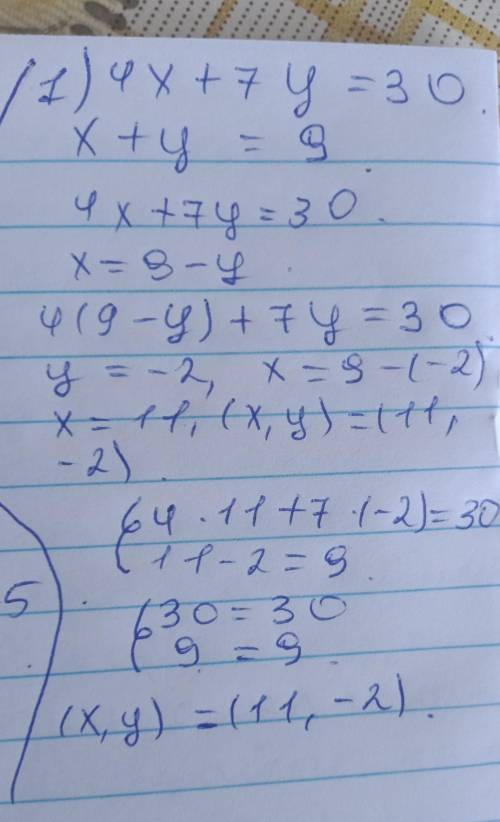 1) 4x + 7y = 30.
x + y = 9
4x + 7y = 30.
x = 9 - y.
4(9 - y) + 7y = 30
y = -2, x = 9 - (-2)
x = 11, (x, y) = (11,
-2).
{ 4 · 11 + 7 · (-2) = 30
{ 11 - 2 = 9.
5
{ 30 = 30
{ 9 = 9.
(x, y) = (11, -2).